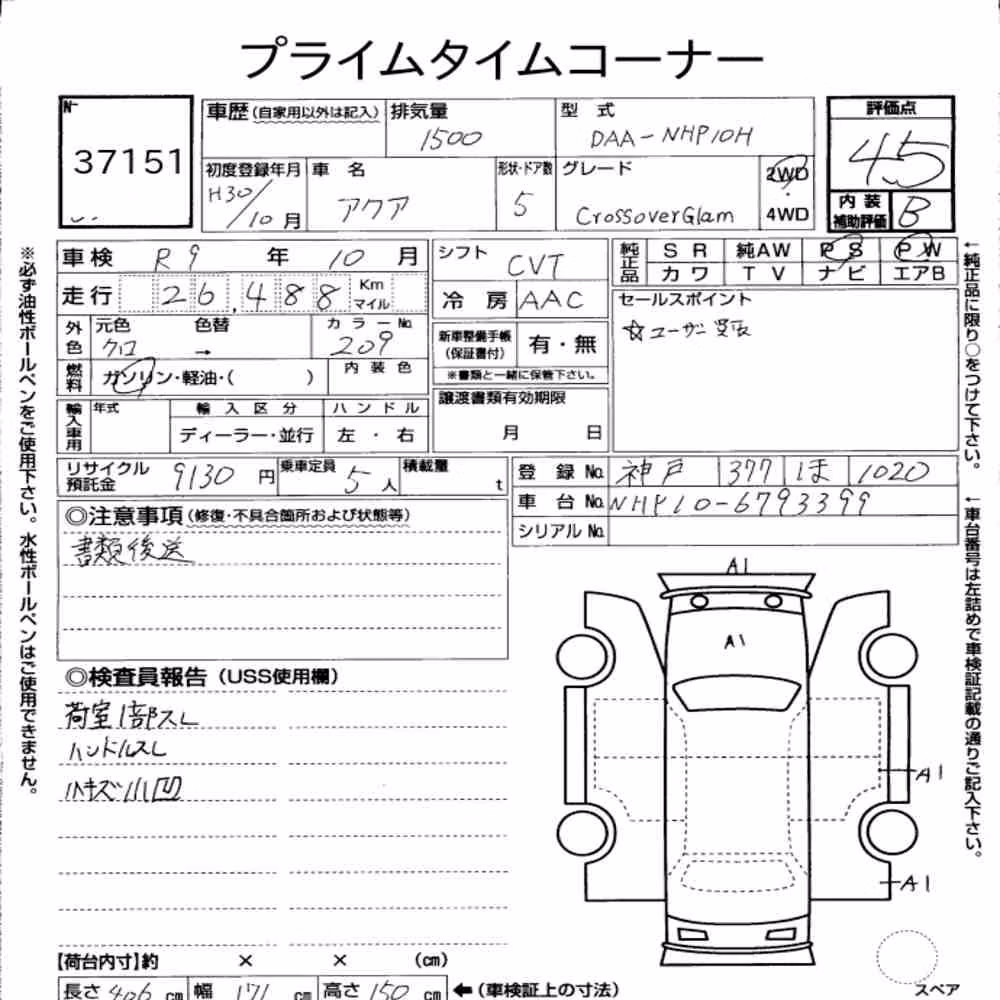 プライムタイムコーナー
No 37151
車歴(自家用以外は記入) 排気量 1500 型式 DAA-NHP10H 評価点 4.5
初度登録年月 H30/10月 車名 アクア 形状・ドア数 5 グレード CrossoverGlam 2WD・4WD 内装補助評価 B
車検 R9年10月 シフト CVT 純正品 SR 純AW PS PW
カワ TV ナビ エアB
走行 26,488 Km マイル 冷房 AAC セールスポイント
☆ユーザー買取
外色 元色 クロ 色替 → カラーNo. 209 新車整備手帳(保証書付) 有・無
※書類と一緒に保管下さい。
燃料 ガソリン・軽油・( ) 内装色
輸入車用 年式 輸入区分 ハンドル 譲渡書類有効期限
ディーラー・並行 左・右 月 日
リサイクル預託金 9130円 乗車定員 5人 積載量 t 登録No. 神戸 377 ほ 1020
車台No. NHP10-6793399
シリアルNo.
◎注意事項(修復・不具合箇所および状態等)
書類後送
◎検査員報告(USS使用欄)
荷室1部スレ
ハンドルスレ
小キズ小凹
A1
A1
A1
A1
【荷台内寸】約 × × (cm)
長さ 406 cm 幅 171 cm 高さ 150 cm ←(車検証上の寸法)
スペア
※必ず油性ボールペンをご使用下さい。水性ボールペンはご使用できません。
←純正品に限り○をつけて下さい。
←車台番号は左詰めで車検証記載の通りご記入下さい。